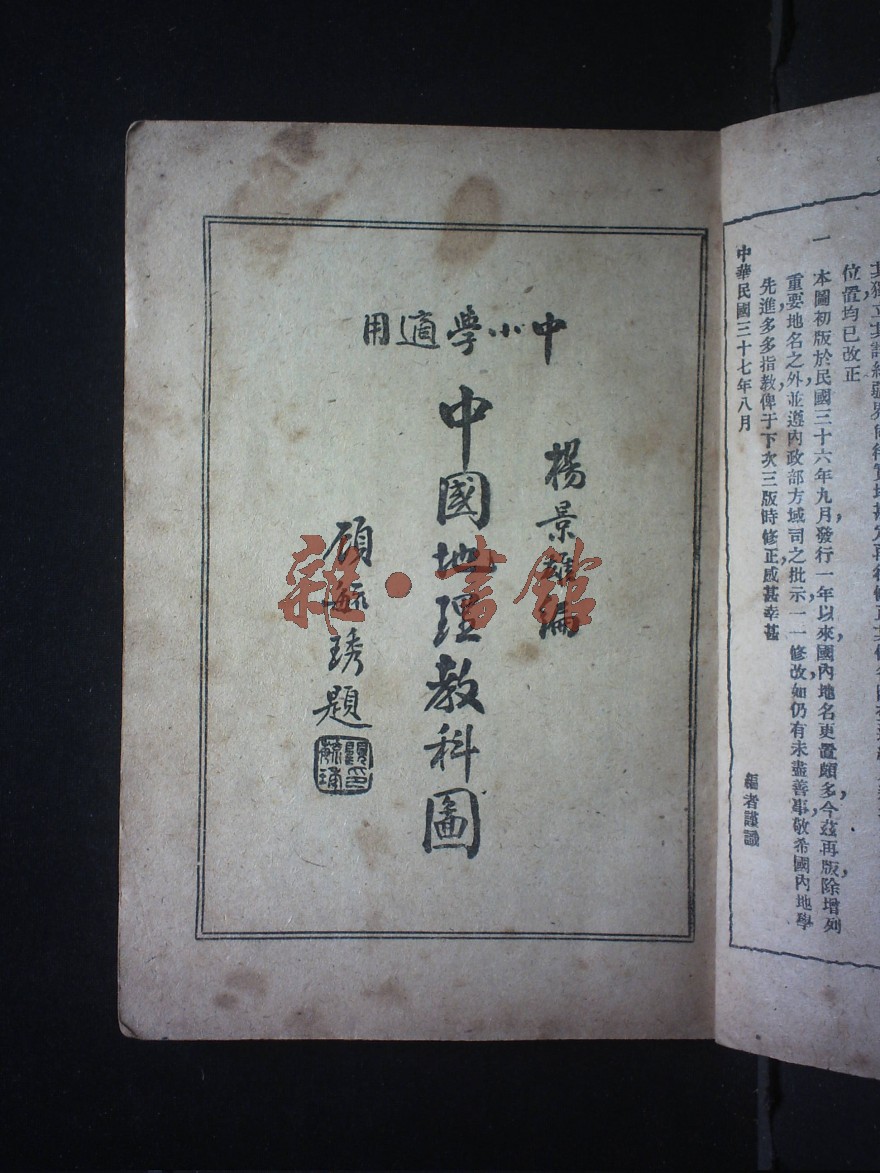 中小學適用
楊景雄編
中國地理教科圖
顧毓琇題
顧毓琇印
雜·書館
位置均已改正
一 本圖初版於民國三十六年九月發行一年以來，國內地名更置頗多，今茲再版，除增列
重要地名之外，並遵內政部方域司之批示，一一修改，如仍有未盡善事，敬希國內地學
先進，多多指教，俾于下次三版時修正，感甚幸甚
中華民國三十七年八月
編者謹識